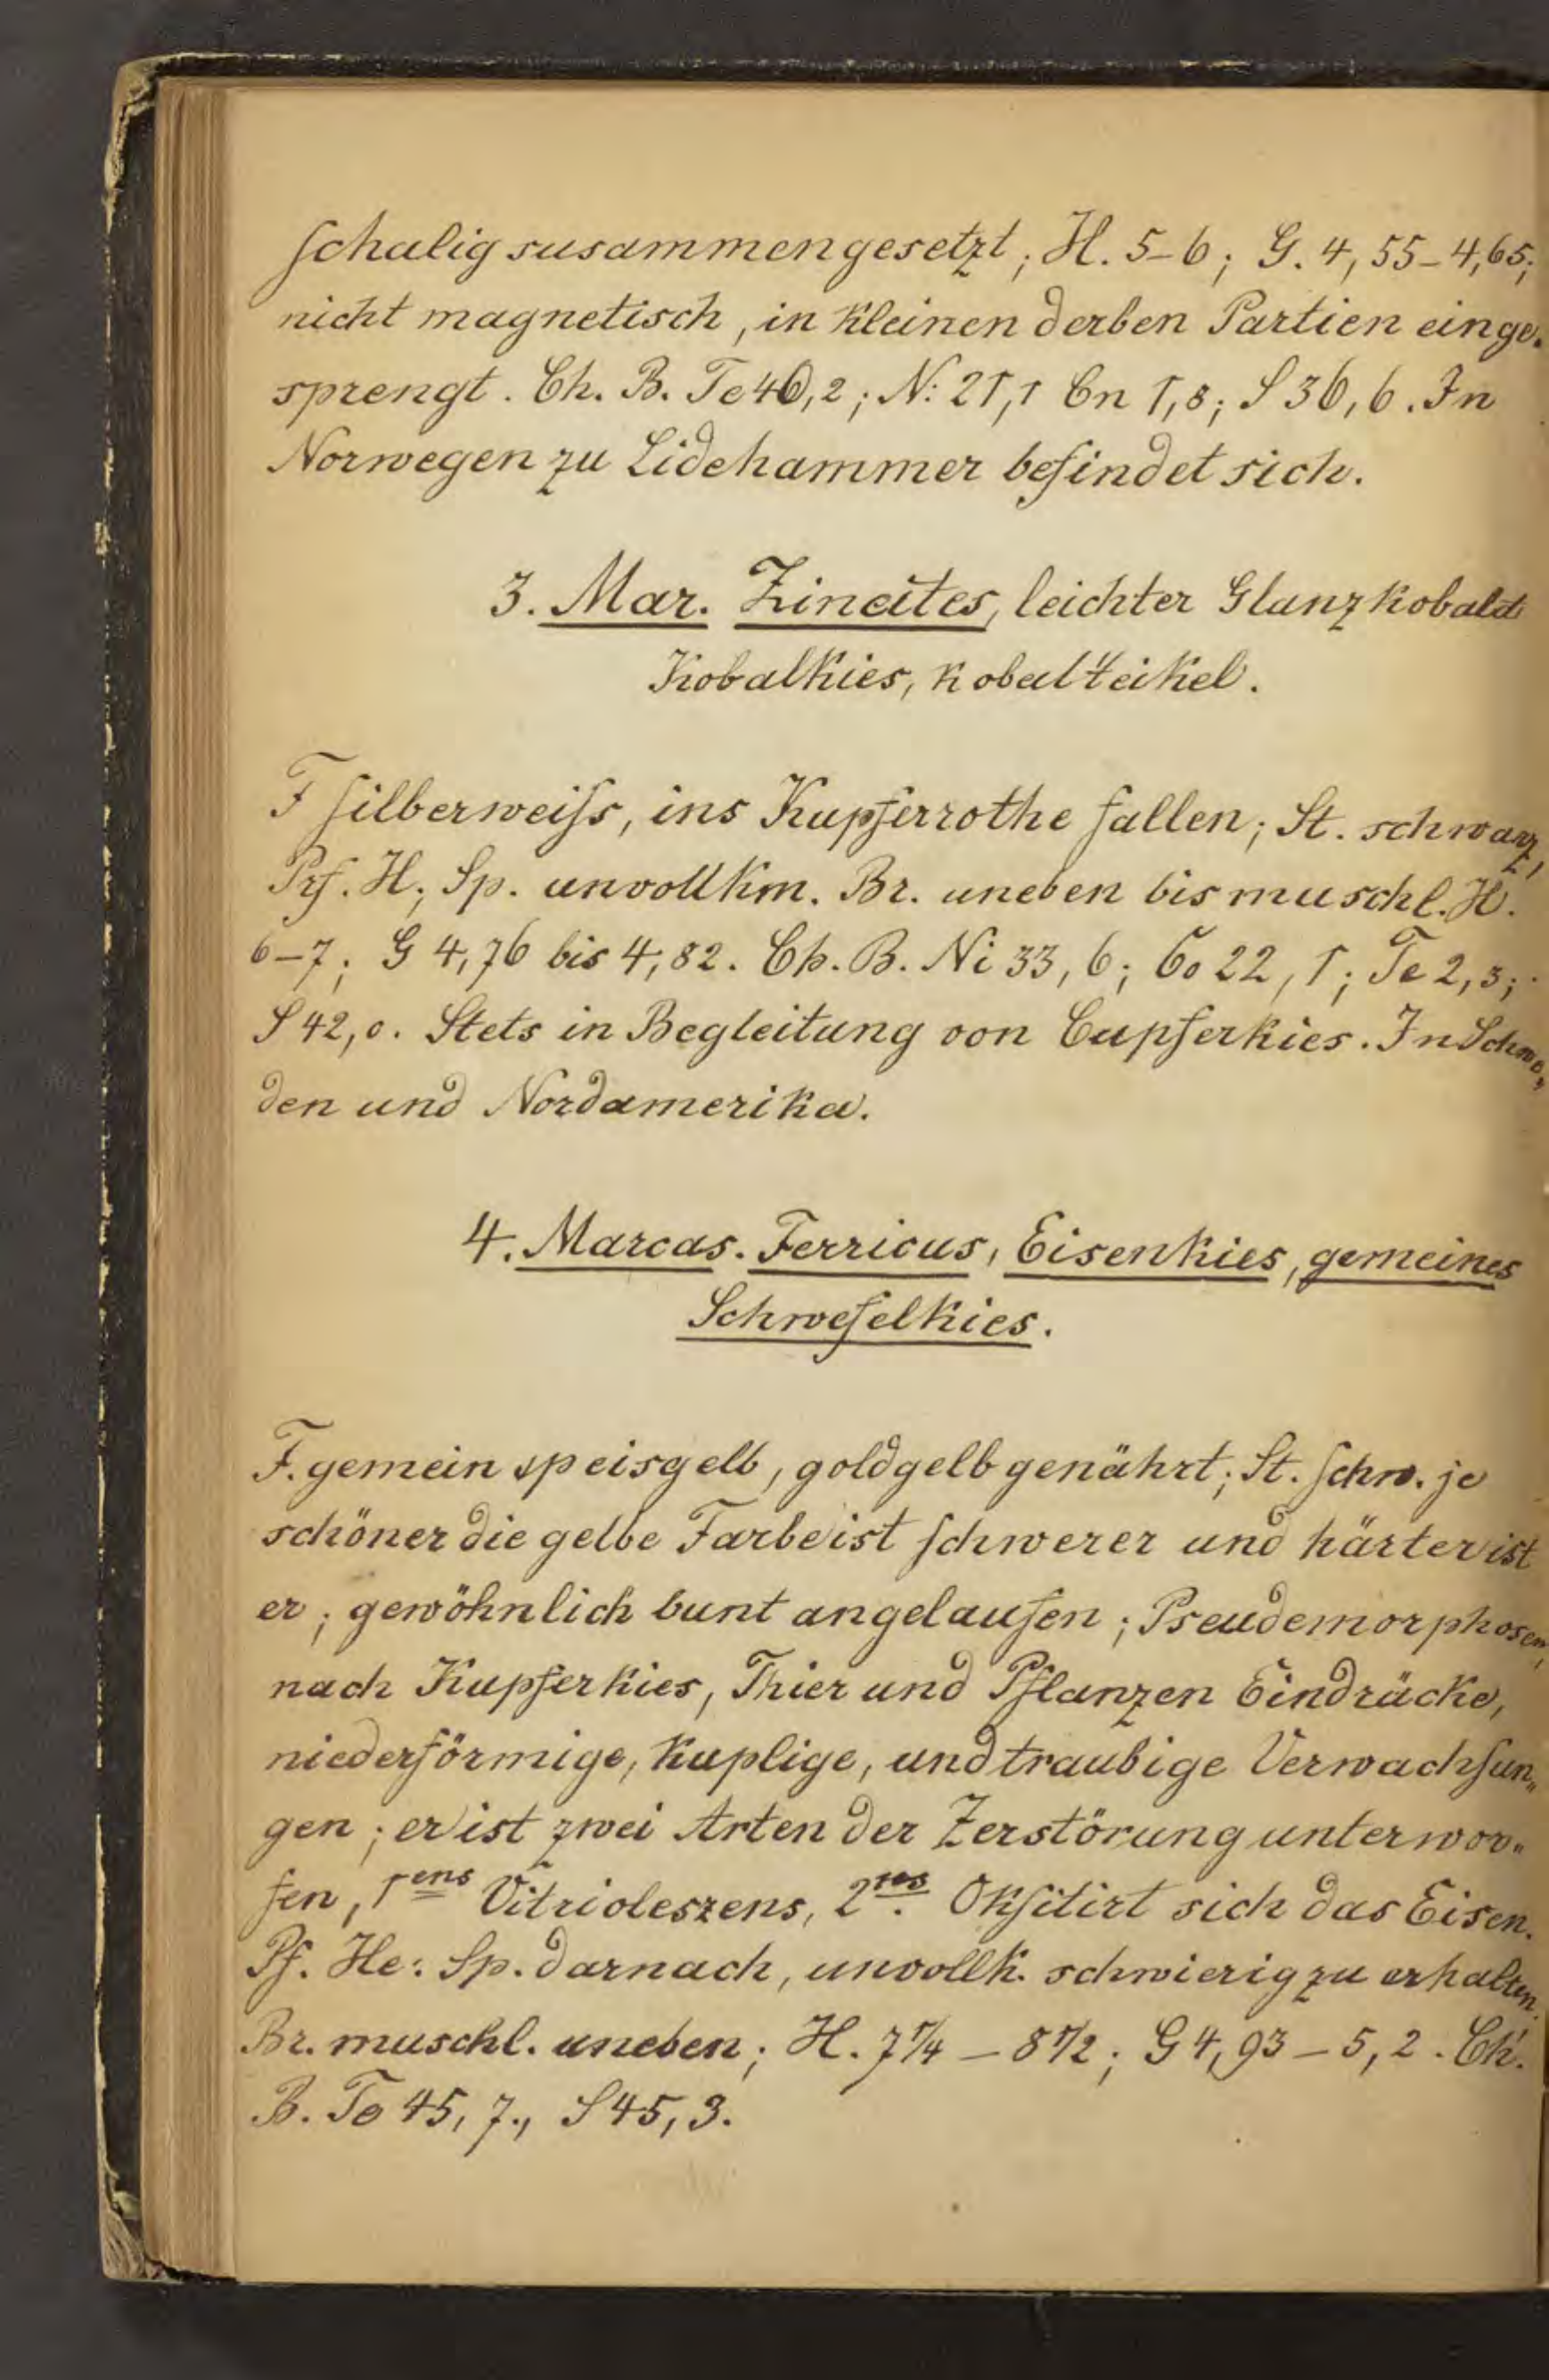 schalig susammengesetzt; H. 5–6; G. 4,55–4,65;
nicht magnetisch, in kleinen derben Partien einge-
sprengt. Ch. B. Fe 40,2; Ni 21,1 Cn 1,8; S 36,6. In
Norwegen zu Lidehammer befindet sich.
3. Mar. Zineites, leichter Glanzkobald
Kobalkies, kobaltteikel.
F silberweiss, ins Kupferrothe fallen; St. schwarz,
Prf. H; Sp. unvollkm. Br. uneben bis muschl. H.
6–7; G 4,76 bis 4,82. Ch. B. Ni 33,6; Co 22,1; Fe 2,3;
S 42,0. Stets in Begleitung von Cupferkies. In Schwe„
den und Nordamerika.
4. Marcas. Ferricus, Eisenkies, gemeines
Schwefelkies.
F. gemein speisgelb, goldgelb genährt; St. schw. je
schöner die gelbe Farbe ist schwerer und härter ist
er; gewöhnlich bunt angelaufen; Pseudemorphosen,
nach Kupferkies, Thier und Pflanzen Eindrücke,
niederförmige, kuplige, und traubige Verwachsun„
gen; er ist zwei Arten der Zerstörung unterwor„
fen, 1ens Vitrioleszens, 2tes. Oksitirt sich das Eisen.
Pf. He: Sp. darnach, unvollk. schwierig zu erhalten.
Br. muschl. uneben; H. 7 1/4 – 8 1/2; G 4,93 – 5,2. Ch.
B. Fe 45,7., S 45,3.